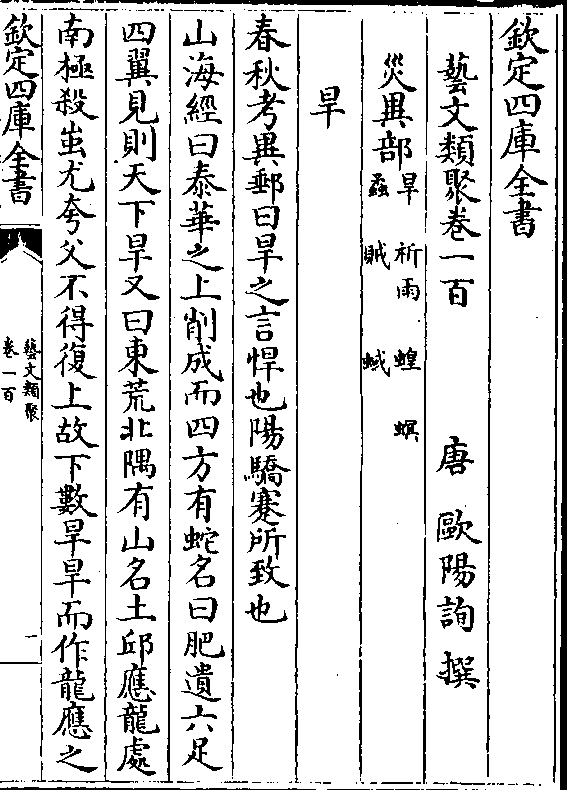 欽定四庫全書
藝文類聚卷一百
唐 歐陽詢 撰
災異部 旱 祈雨 蝗 螟
蟊 賊 蜮
旱
春秋考異郵曰旱之言悍也陽驕蹇所致也
山海經曰泰華之上削成而四方有蛇名曰肥遺六足
四翼見則天下旱又曰東荒北隅有山名土邱應龍處
南極殺蚩尤夸父不得復上故下數旱旱而作龍應之
欽定四庫全書
藝文類聚
卷一百
一